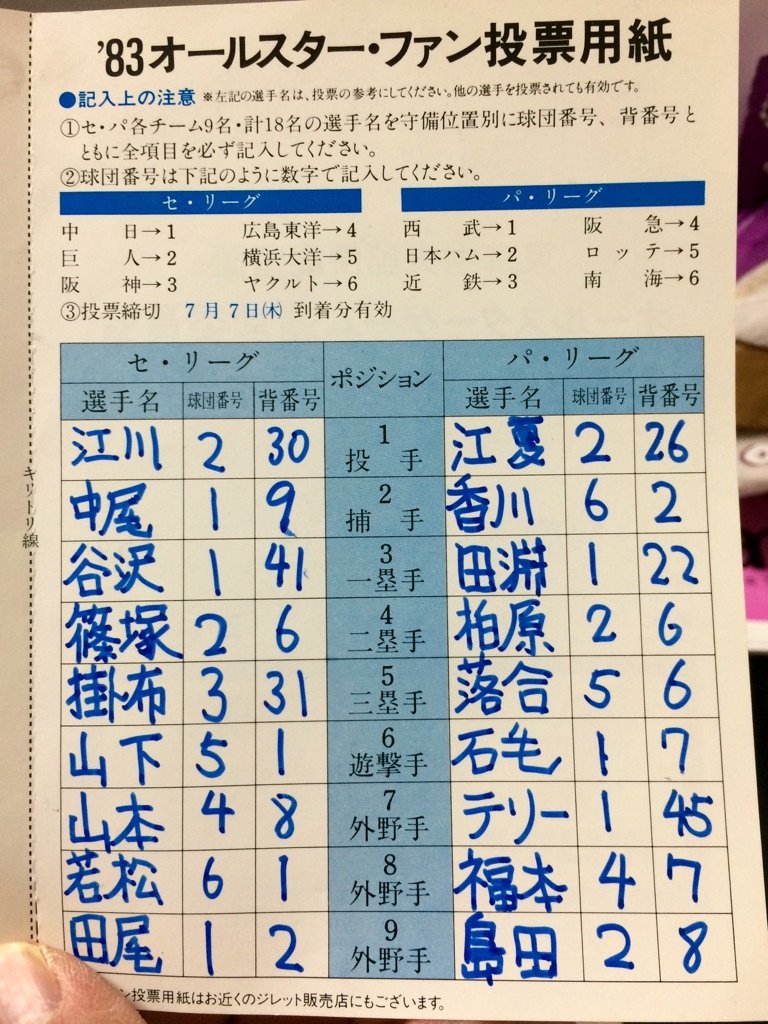 '83オールスター・ファン投票用紙
●記入上の注意 ※左記の選手名は、投票の参考にしてください。他の選手を投票されても有効です。
①セ・パ各チーム9名・計18名の選手名を守備位置別に球団番号、背番号と
ともに全項目を必ず記入してください。
②球団番号は下記のように数字で記入してください。
セ・リーグ パ・リーグ
中日→1 広島東洋→4 西武→1 阪急→4
巨人→2 横浜大洋→5 日本ハム→2 ロッテ→5
阪神→3 ヤクルト→6 近鉄→3 南海→6
③投票締切 7月7日㈭ 到着分有効
セ・リーグ ポジション パ・リーグ
選手名 球団番号 背番号 選手名 球団番号 背番号
江川 2 30 1 投手 江夏 2 26
中尾 1 9 2 捕手 香川 6 2
谷沢 1 41 3 一塁手 田淵 1 22
篠塚 2 6 4 二塁手 柏原 2 6
掛布 3 31 5 三塁手 落合 5 6
山下 5 1 6 遊撃手 石毛 1 7
山本 4 8 7 外野手 テリー 1 45
若松 6 1 8 外野手 福本 4 7
田尾 1 2 9 外野手 島田 2 8
ン投票用紙はお近くのジレット販売店にもございます。
キリトリ線